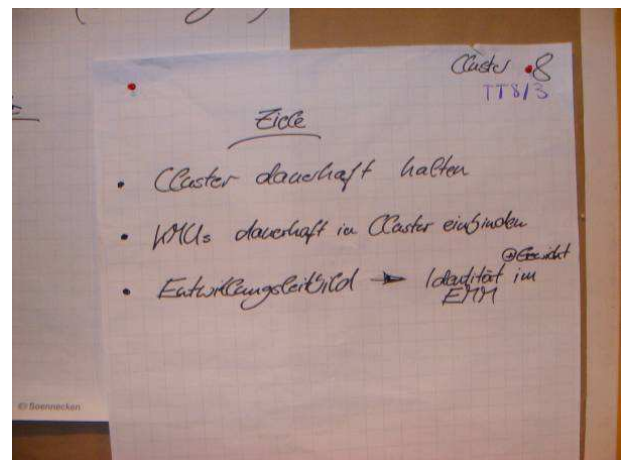 Cluster 8
TT8/3
Ziele
• Cluster dauerhaft halten
• KMUs dauerhaft in Cluster einbinden
• Entwicklungsleitbild → Identität im
EMM
Soennecken